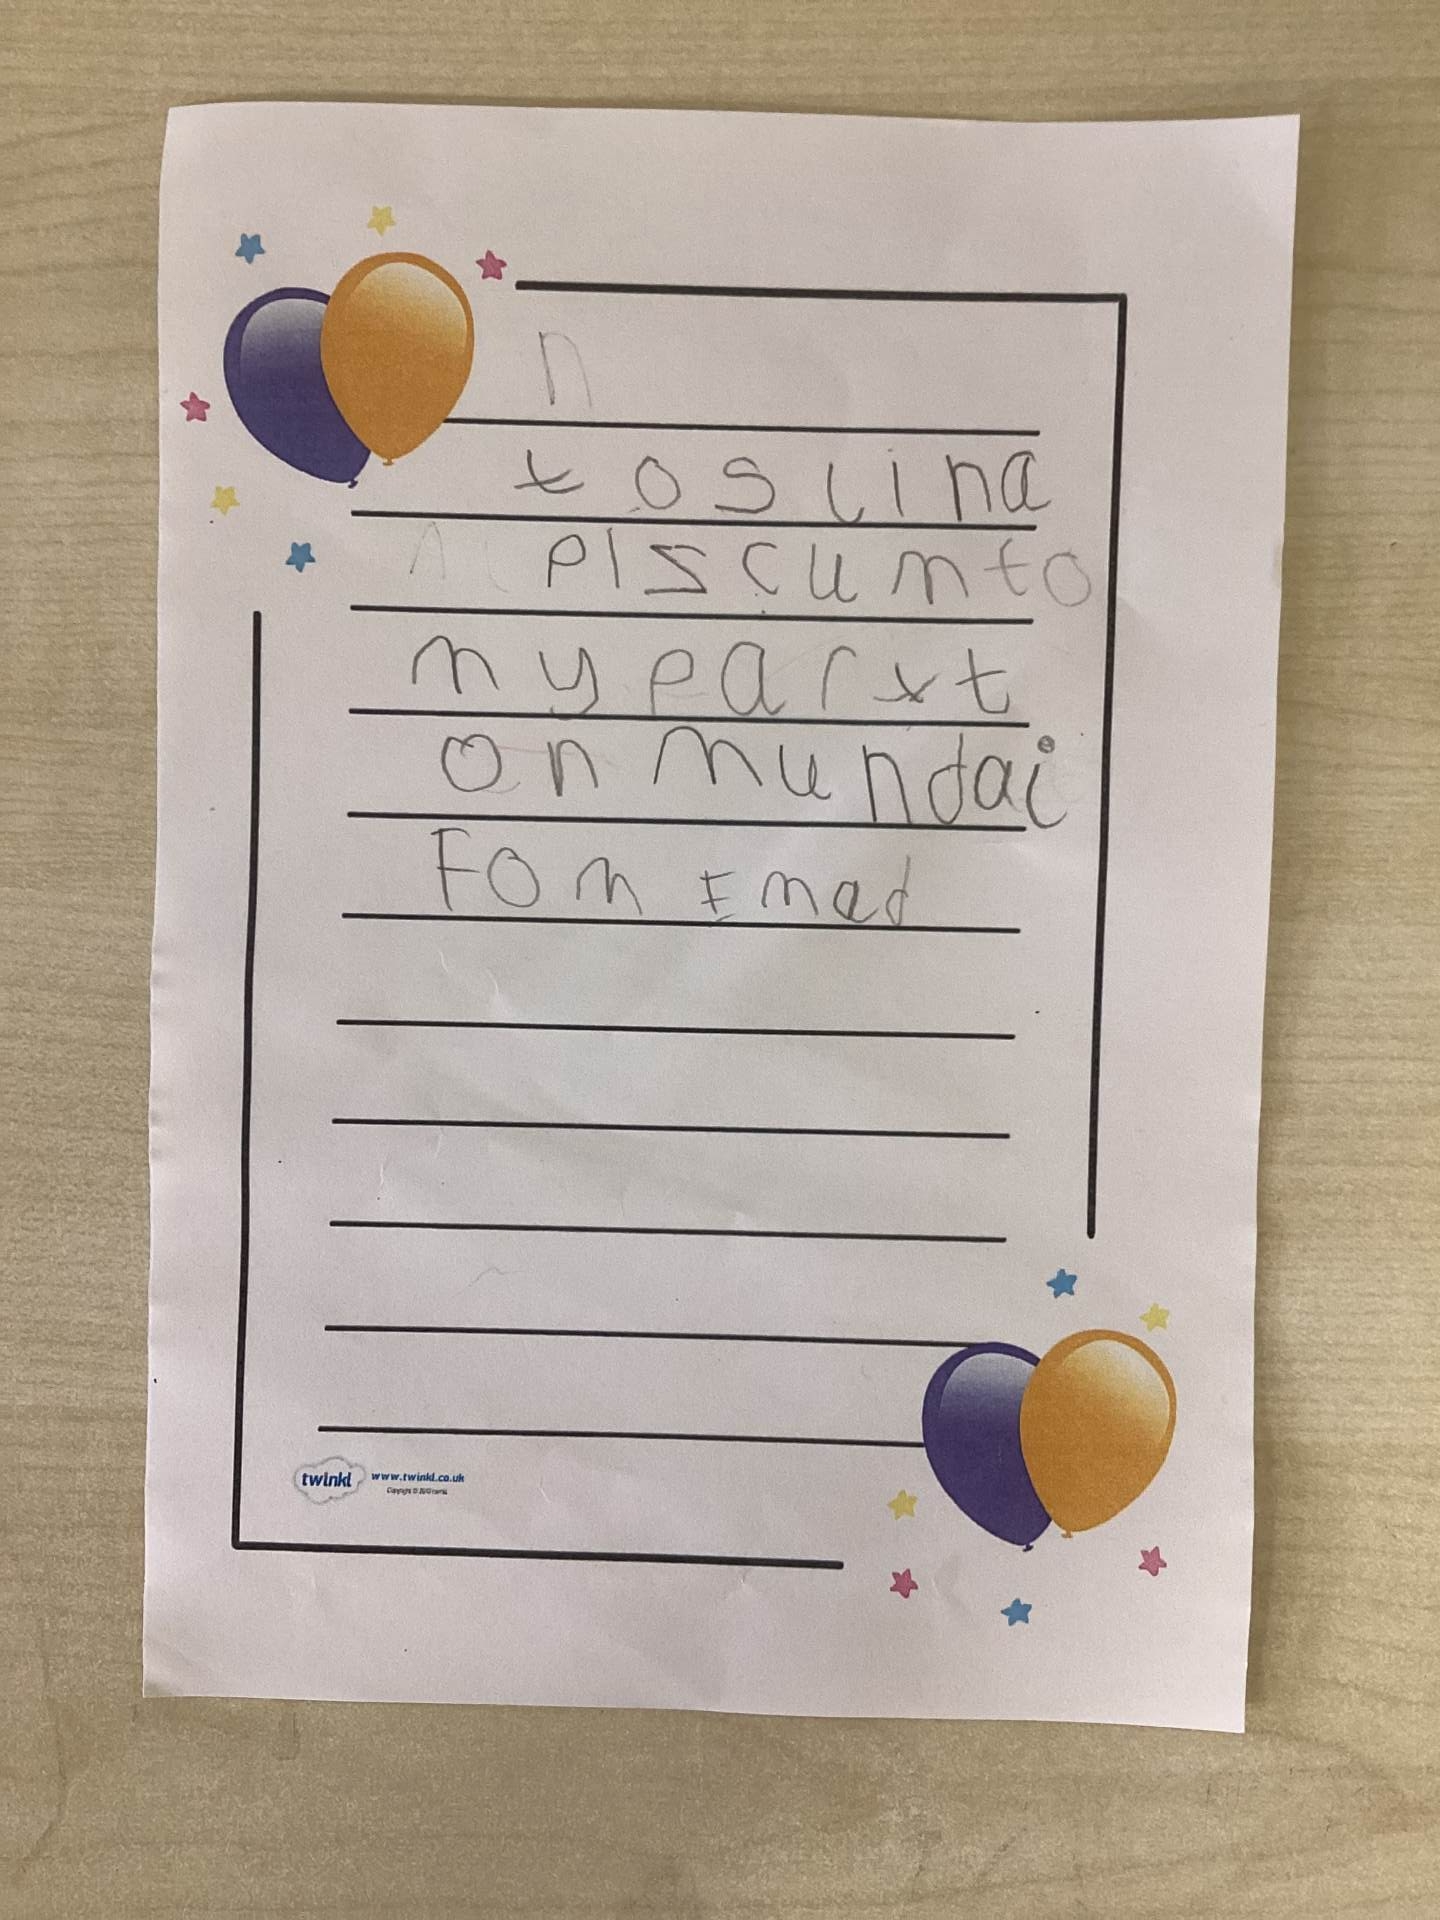 n
to slina
pls cum to
my parxt
on mundai
Fom Emad
twinkl www.twinkl.co.uk